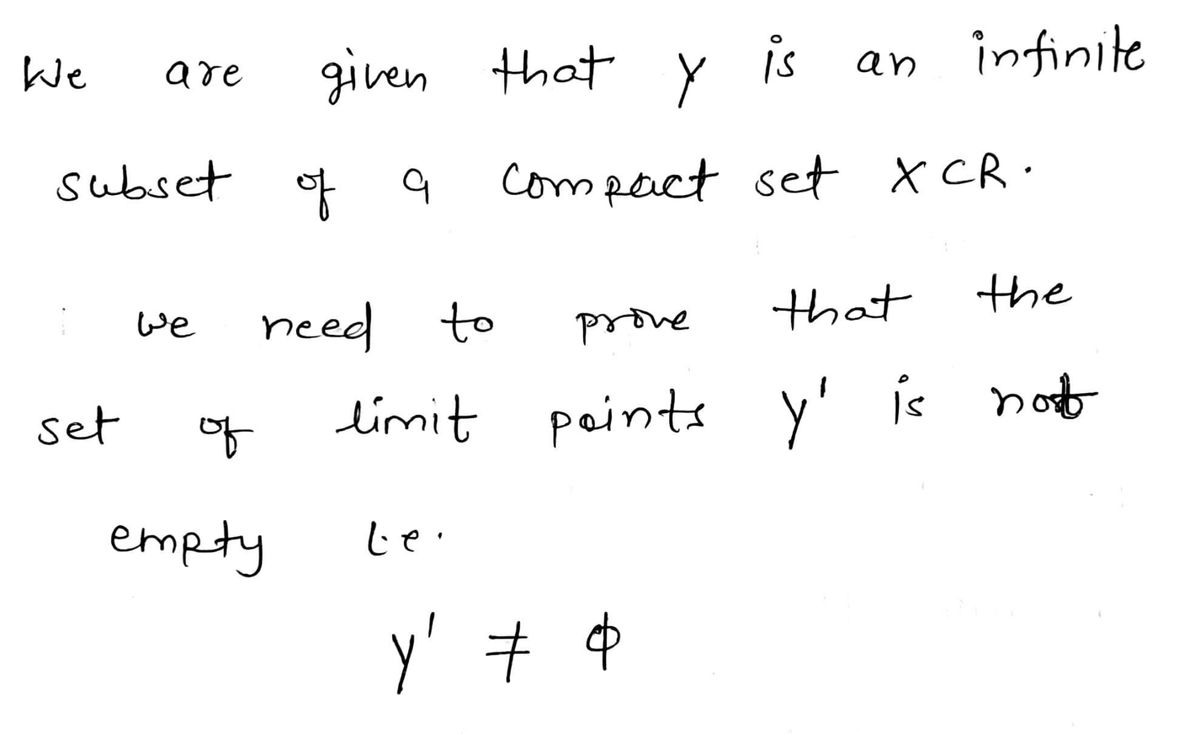 We are given that y is an infinite
subset of a compact set X ⊂ R.
we need to prove that the
set of limit points y' is not
empty i.e.
y' ≠ ϕ